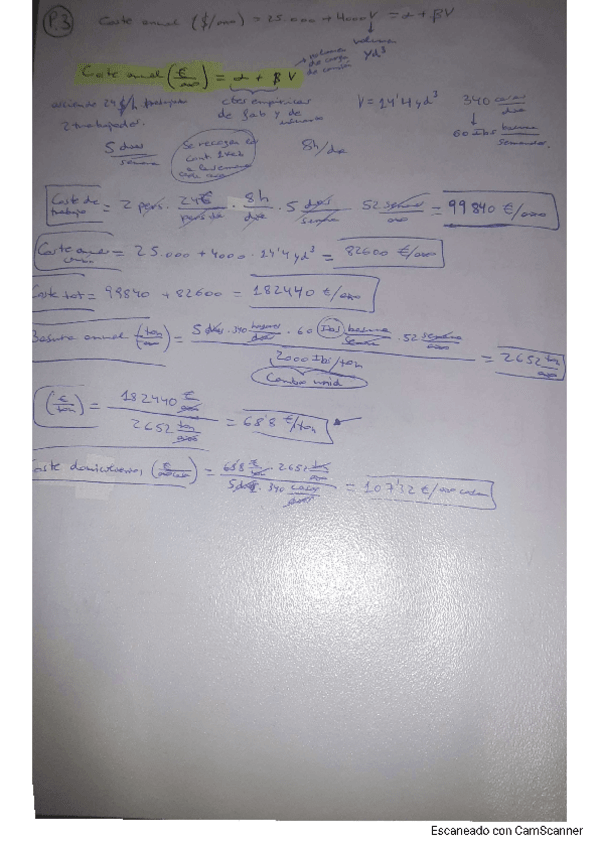 P.3 Coste anual ($/año) = 25.000 + 4000V = α + βV
volumen
yd³
Coste anual (€/año) = α + β V
volumen de carga de camión
ctes empíricas
V = 14'4 yd³
340 casas/día
2 trabajador.
60 lbs basura/semana.
5 días/semana
Se recogen
cont. 1 vez
a la semana
cada
8h/día
Coste de trabajo = 2 pers. · 24€/pers·h · 8h/día · 5 días/semana 52 semana/año = 99840 €/año
Coste anual = 25.000 + 4000 · 14'4 yd³ = 82600 €/año
Coste tot = 99840 + 82600 = 182440 €/año
Basura anual (ton/año) = 5 días · 340 casas/día · 60 lbs basura/semana · 52 semana/año / 2000 lbs/ton = 2652 ton/año
Cambio unid
(€/ton) = 182440 €/año / 2652 ton/año = 68'8 €/ton
= 68'8 €/ton · 2652 ton/año / 5 días · 340 casas/día = 107'32 €/año
Escaneado con CamScanner